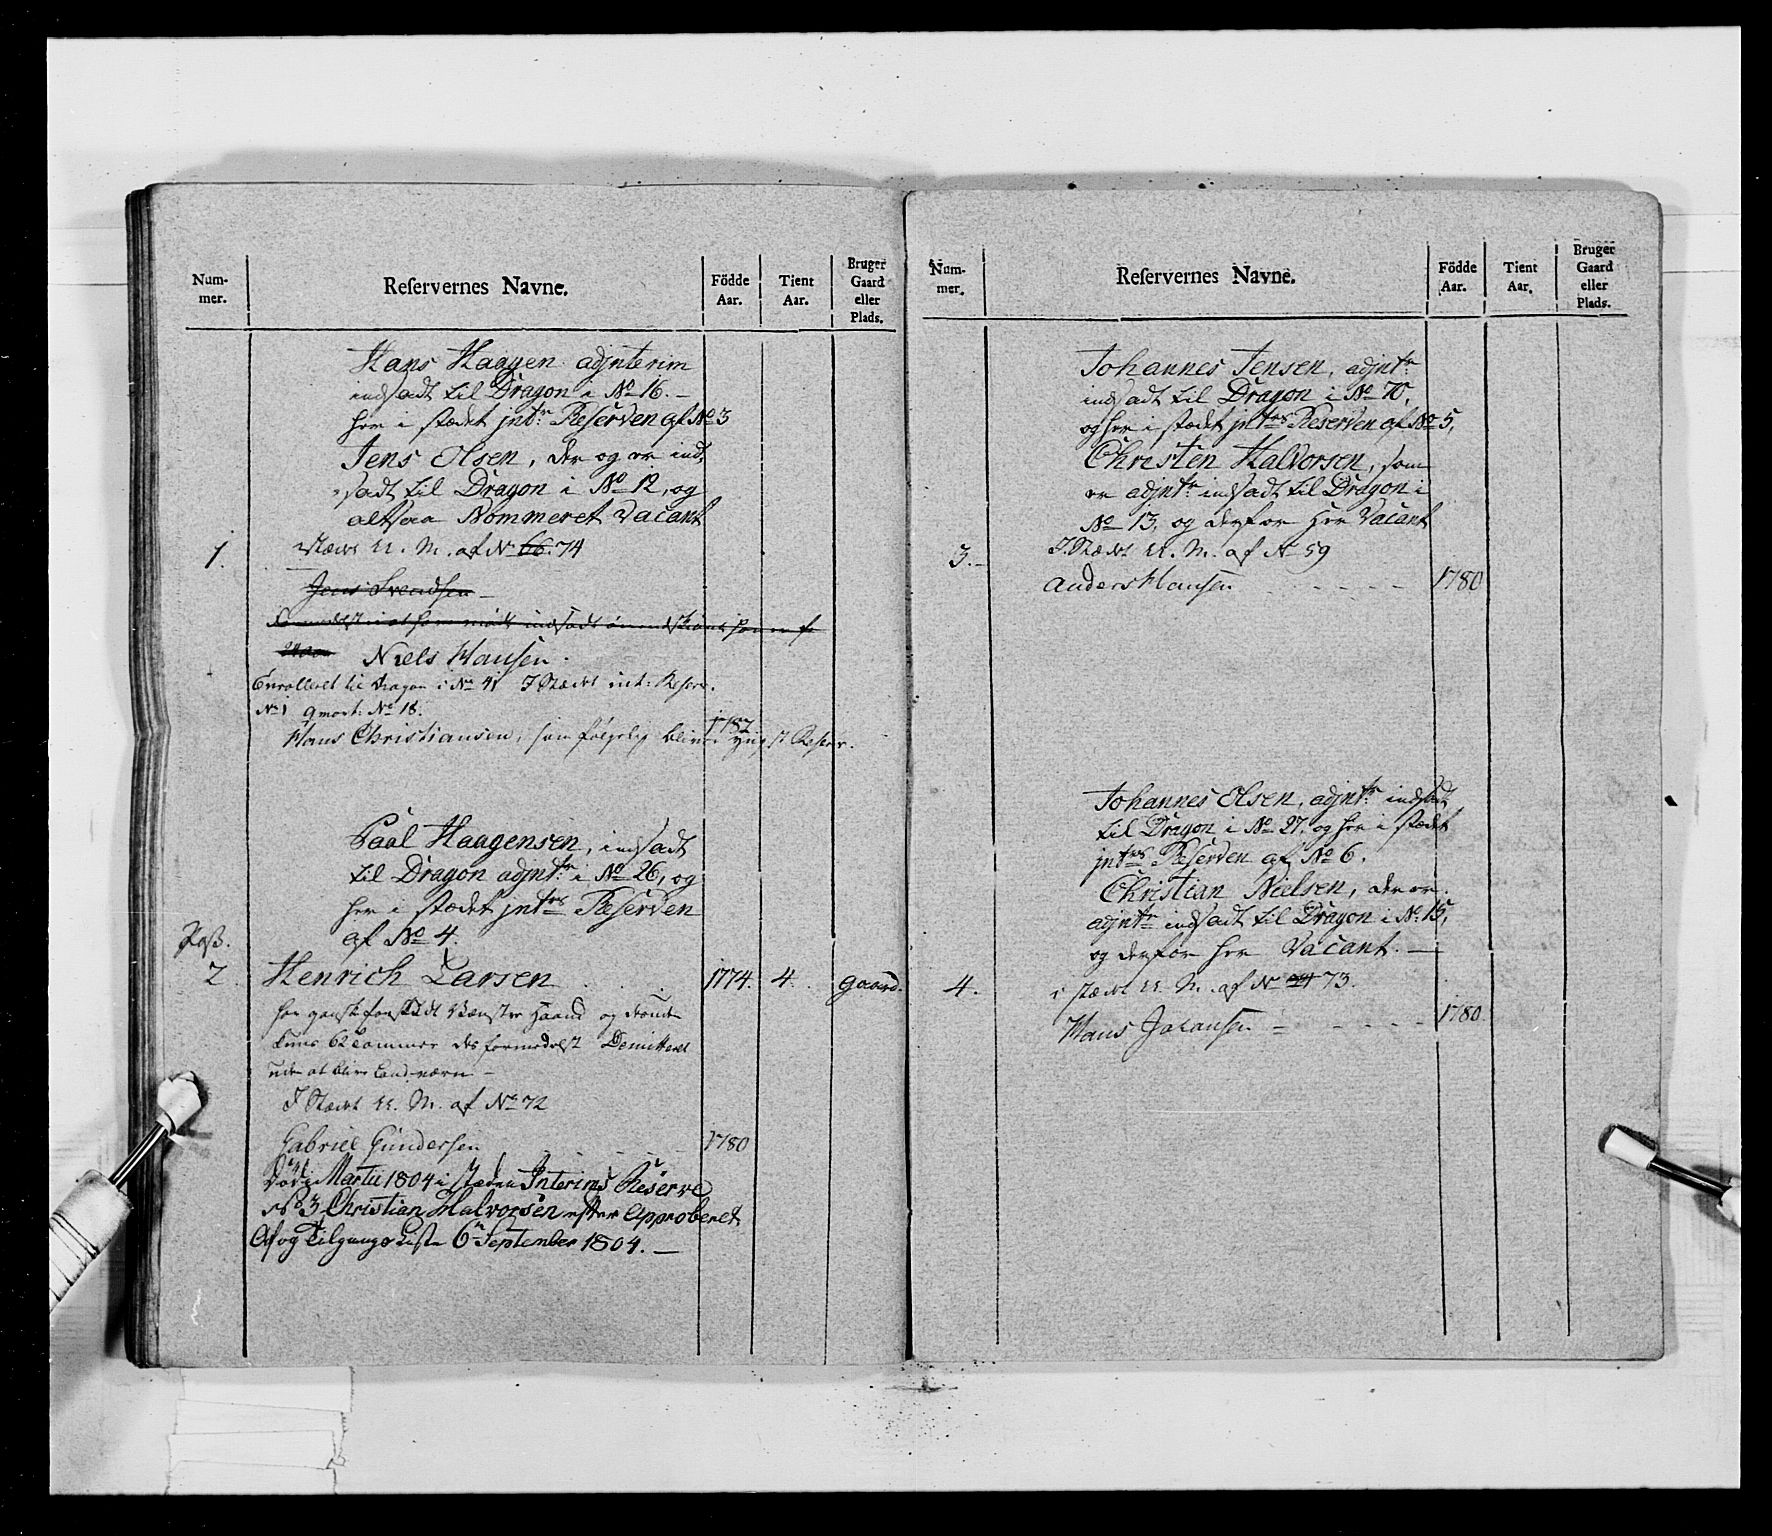 Num-
mer.
Reservernes Navne.
Födde
Aar.
Tient
Aar.
Bruger
Gaard
eller
Plads.
Hans Haagen adjnterim
indsadt til Dragon i No 16. -
her i stædet jntr. Reserven af No 3
Jens Olsen, der og er ind,
sadt til Dragon i No 12, og
altsaa Nommeret Vacant
1.
Stædet U. M. af No 66. 74
Jens Svendsen -
Niels Hansen.
Enrolleret til Dragon i No 41 I Stædet int: Reserv.
No 1 qmort: No 18.
1782
Hans Christiansen, som følgelig bliver yngst Reserv.
Paal Haagensen, indsadt
til Dragon adjntr. i No 26, og
her i stædet jntrs Reserven
af No 4.
Pass.
2.
Henrich Larsen
1774.
4.
gaard.
har gansk forskudt Venster Haand og
62 Tommer des formedelst Demitteret
uden at blive Landværn -
I Stædet U. M. af No 72
Gabriel Gundersen
1780
Død i Martii 1804 i stæden Interims Reserve
No 3 Christian Halvorsen efter Approberet
Af og Tilgangs Liste 6n September 1804. -
Num-
mer.
Reservernes Navne.
Födde
Aar.
Tient
Aar.
Bruger
Gaard
eller
Plads.
Johannes Jensen, adjntr.
indsadt til Dragon i No 70,
og her i stædet jntrs Reserven af No 5,
Christen Halvorsen, som
er adjntr. indsadt til Dragon i
No 13. og derfor her Vacant
3.
I Stædet U. M. af No 59
Anders Hansen
1780
Johannes Olsen, adjntr. indsadt
til Dragon i No 27. og her i stædet
jntrs Reserven af No 6.
Christian Nielsen, der er
adjntr indsadt til Dragon i No 15,
og derfor her Vacant. -
4.
i stædet U. M. af No 73.
Hans Johansen
1780.